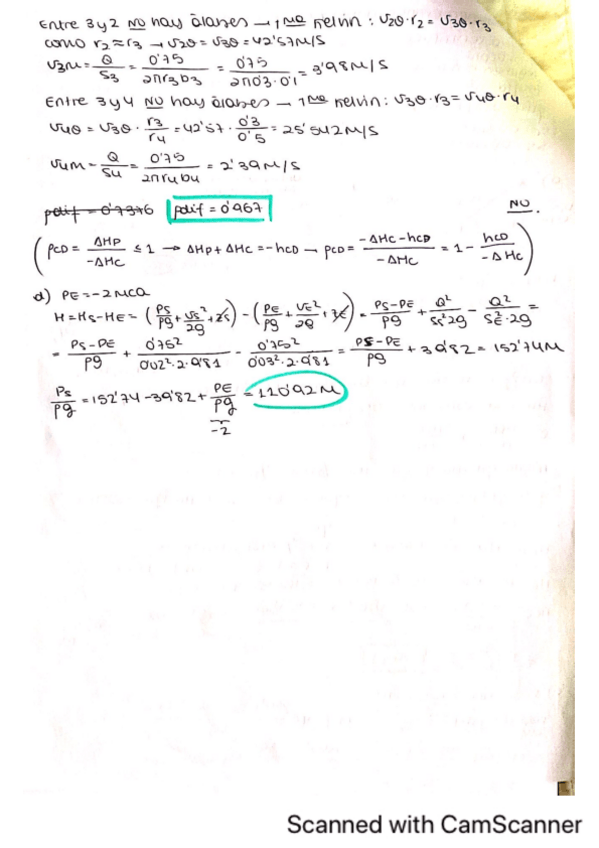 Entre 3 y 2 NO hay álabes → 1 Mo Kelvin : v2θ·r2 = v3θ·r3
como r2 ≈ r3 → v2θ = v3θ = 42'57 M/S
v3M = Q/S3 = 0'75/2πr3b3 = 0'75/2π0'3·0'1 = 3'98 M/S
Entre 3 y 4 NO hay álabes → 1 Mo Kelvin: v3θ·r3 = v4θ·r4
v4θ = v3θ · r3/r4 = 42'57 · 0'3/0'5 = 25'542 M/S
v4M = Q/S4 = 0'75/2πr4b4 = 2'39 M/S
ρdif = 0'7376 ρdif = 0'967 NO.
(ρCD = ΔHP/-ΔHC ≤ 1 → ΔHP + ΔHC = -hCD → ρCD = -ΔHC-hCD/-ΔHC = 1 - hCD/-ΔHC)
d) PE = -2 MCA
H = HS - HE = (PS/ρg + VS²/2g + zS) - (PE/ρg + VE²/2g + zE) = PS-PE/ρg + Q²/SS²2g - Q²/SE²·2g =
= PS-PE/ρg + 0'75²/0'02²·2·9'81 - 0'75²/0'03²·2·9'81 = PS-PE/ρg + 39'82 = 152'74 M
PS/ρg = 152'74 - 39'82 + PE/ρg = 110'92 M
-2
Scanned with CamScanner